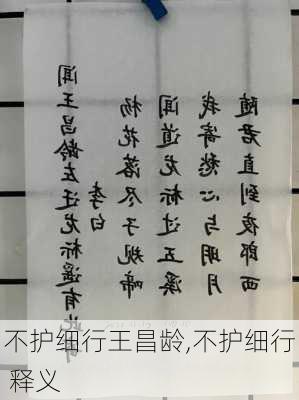 闻王昌龄左迁龙标遥有此
李白
杨花落尽子规啼
闻道龙标过五溪
我寄愁心与明月
随君直到夜郎西
不护细行王昌龄,不护细行
释义